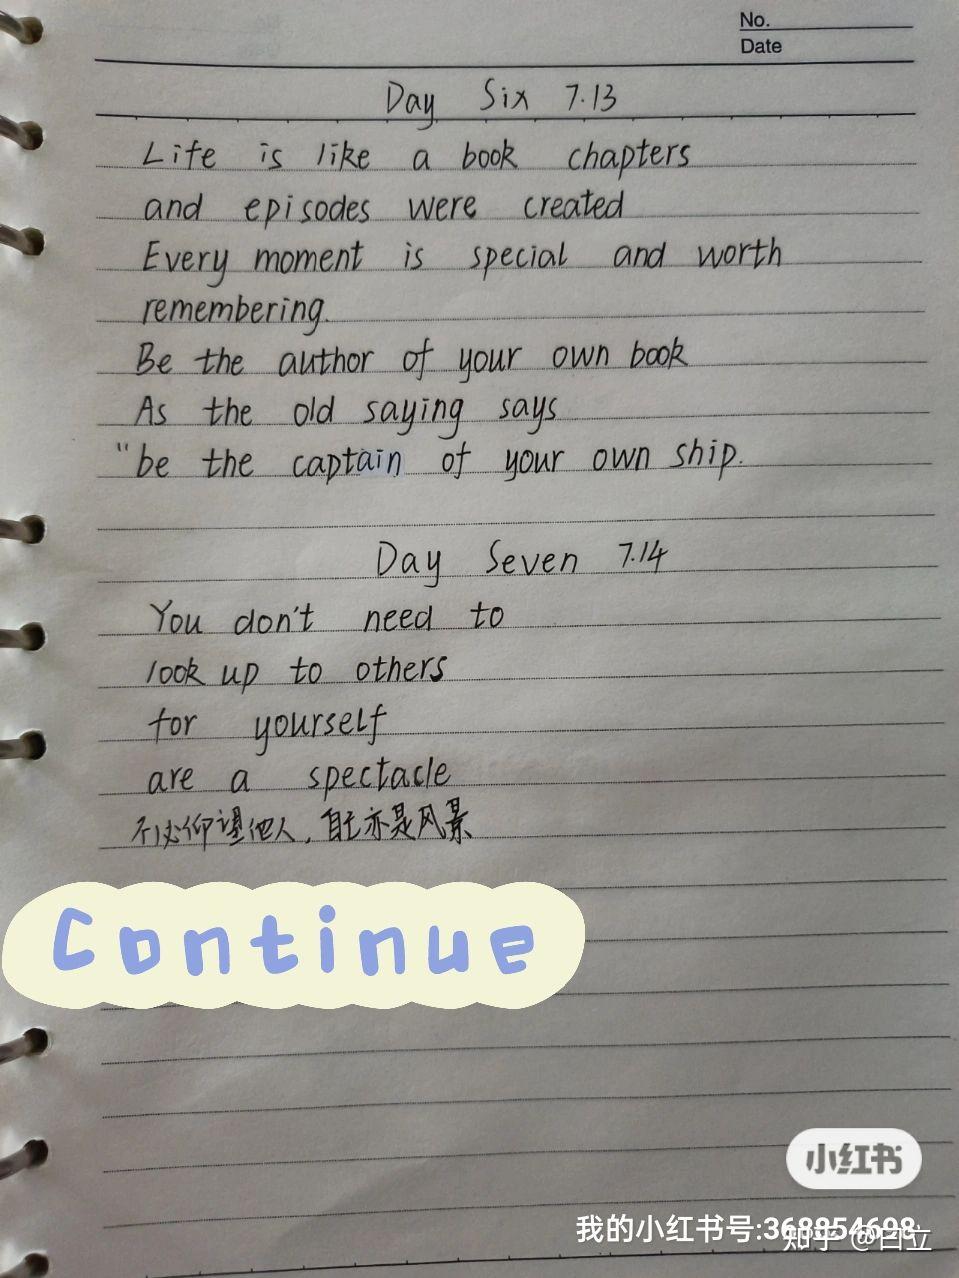 No.
Date
Day Six 7.13
Life is like a book chapters
and episodes were created
Every moment is special and worth
remembering.
Be the author of your own book
As the old saying says
"be the captain of your own ship.
Day Seven 7.14
You don't need to
look up to others
for yourself
are a spectacle
不必仰望他人，自己亦是风景
Continue
小红书
我的小红书号:368854698
知乎 @白立